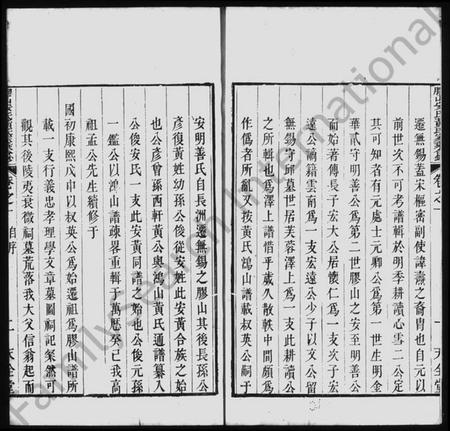 遷無錫蓋宋樞密副使諱燾之裔胄也自元以
前世次不可考譜輯於明季耕讀心雲二公定
其可知者有元處士元卿公爲第一世生明金
華貳守明善公爲第二世膠山之安至明善公
而始著傳長子宏大公居懷仁爲一支次子宏
遠公謫籍雲南爲一支宏遠公少子以文公留
無錫守邱墓世居芙蓉澤上爲一支此耕讀公
之所輯也爲澤上譜惜乎歲久散軼中間頗爲
作僞者所亂又按黃氏鴻山譜載权英公嗣于
安明善氏自長洲遷無錫之膠山其後長孫公
彥復黃姓幼孫公俊從安姓此安黃合族之始
也公彥曾孫西軒黃公與鴻山黃氏通譜纂入
公俊安氏一支此安黃同譜之始也公俊元孫
一鑑公以鴻山譜疎畧重輯于萬厯癸巳我高
祖孟公先生續修于
國初康熙戊申以权英公爲始遷祖爲膠山譜所
載一支行義忠孝理學文章墓圖祠記粲然可
觀其後陵夷衰微祠墓荒落我大父信翁起而
卷之一
自序
二
天全堂
卷之一
一
天全堂
FamilySearch International